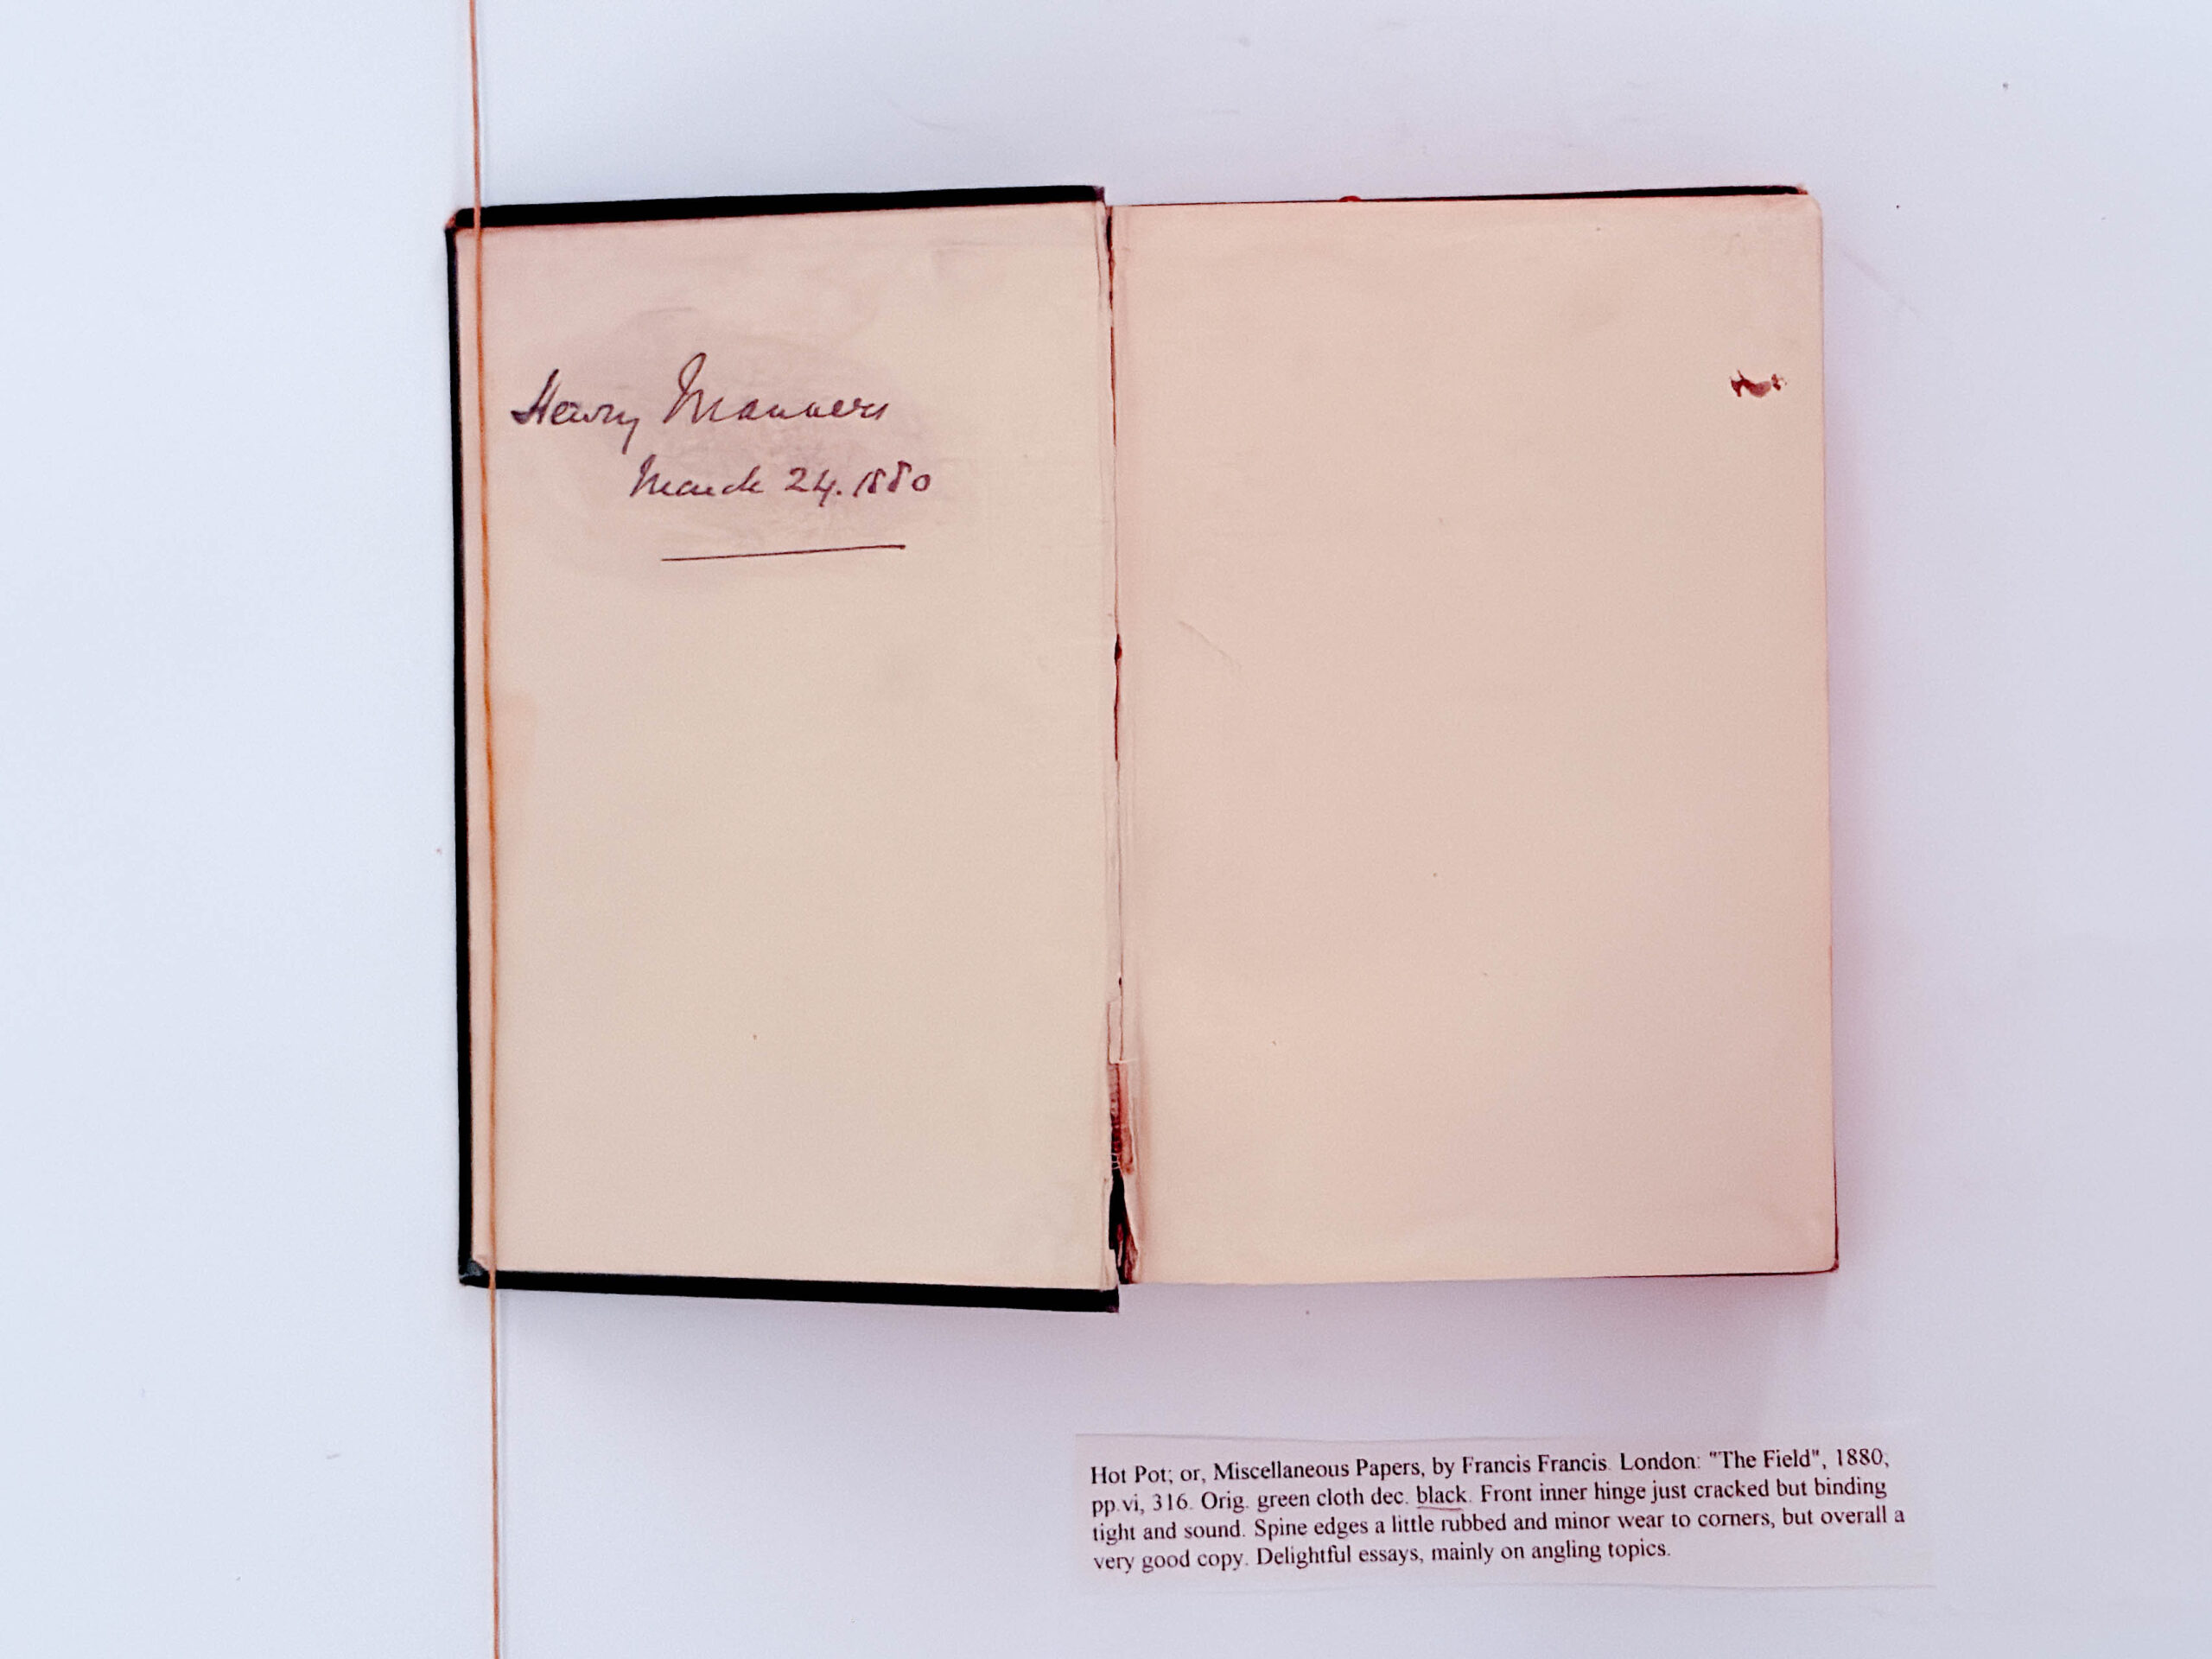 Henry Manners
March 24. 1880
Hot Pot; or, Miscellaneous Papers, by Francis Francis. London: "The Field", 1880,
pp.vi, 316. Orig. green cloth dec. black. Front inner hinge just cracked but binding
tight and sound. Spine edges a little rubbed and minor wear to corners, but overall a
very good copy. Delightful essays, mainly on angling topics.